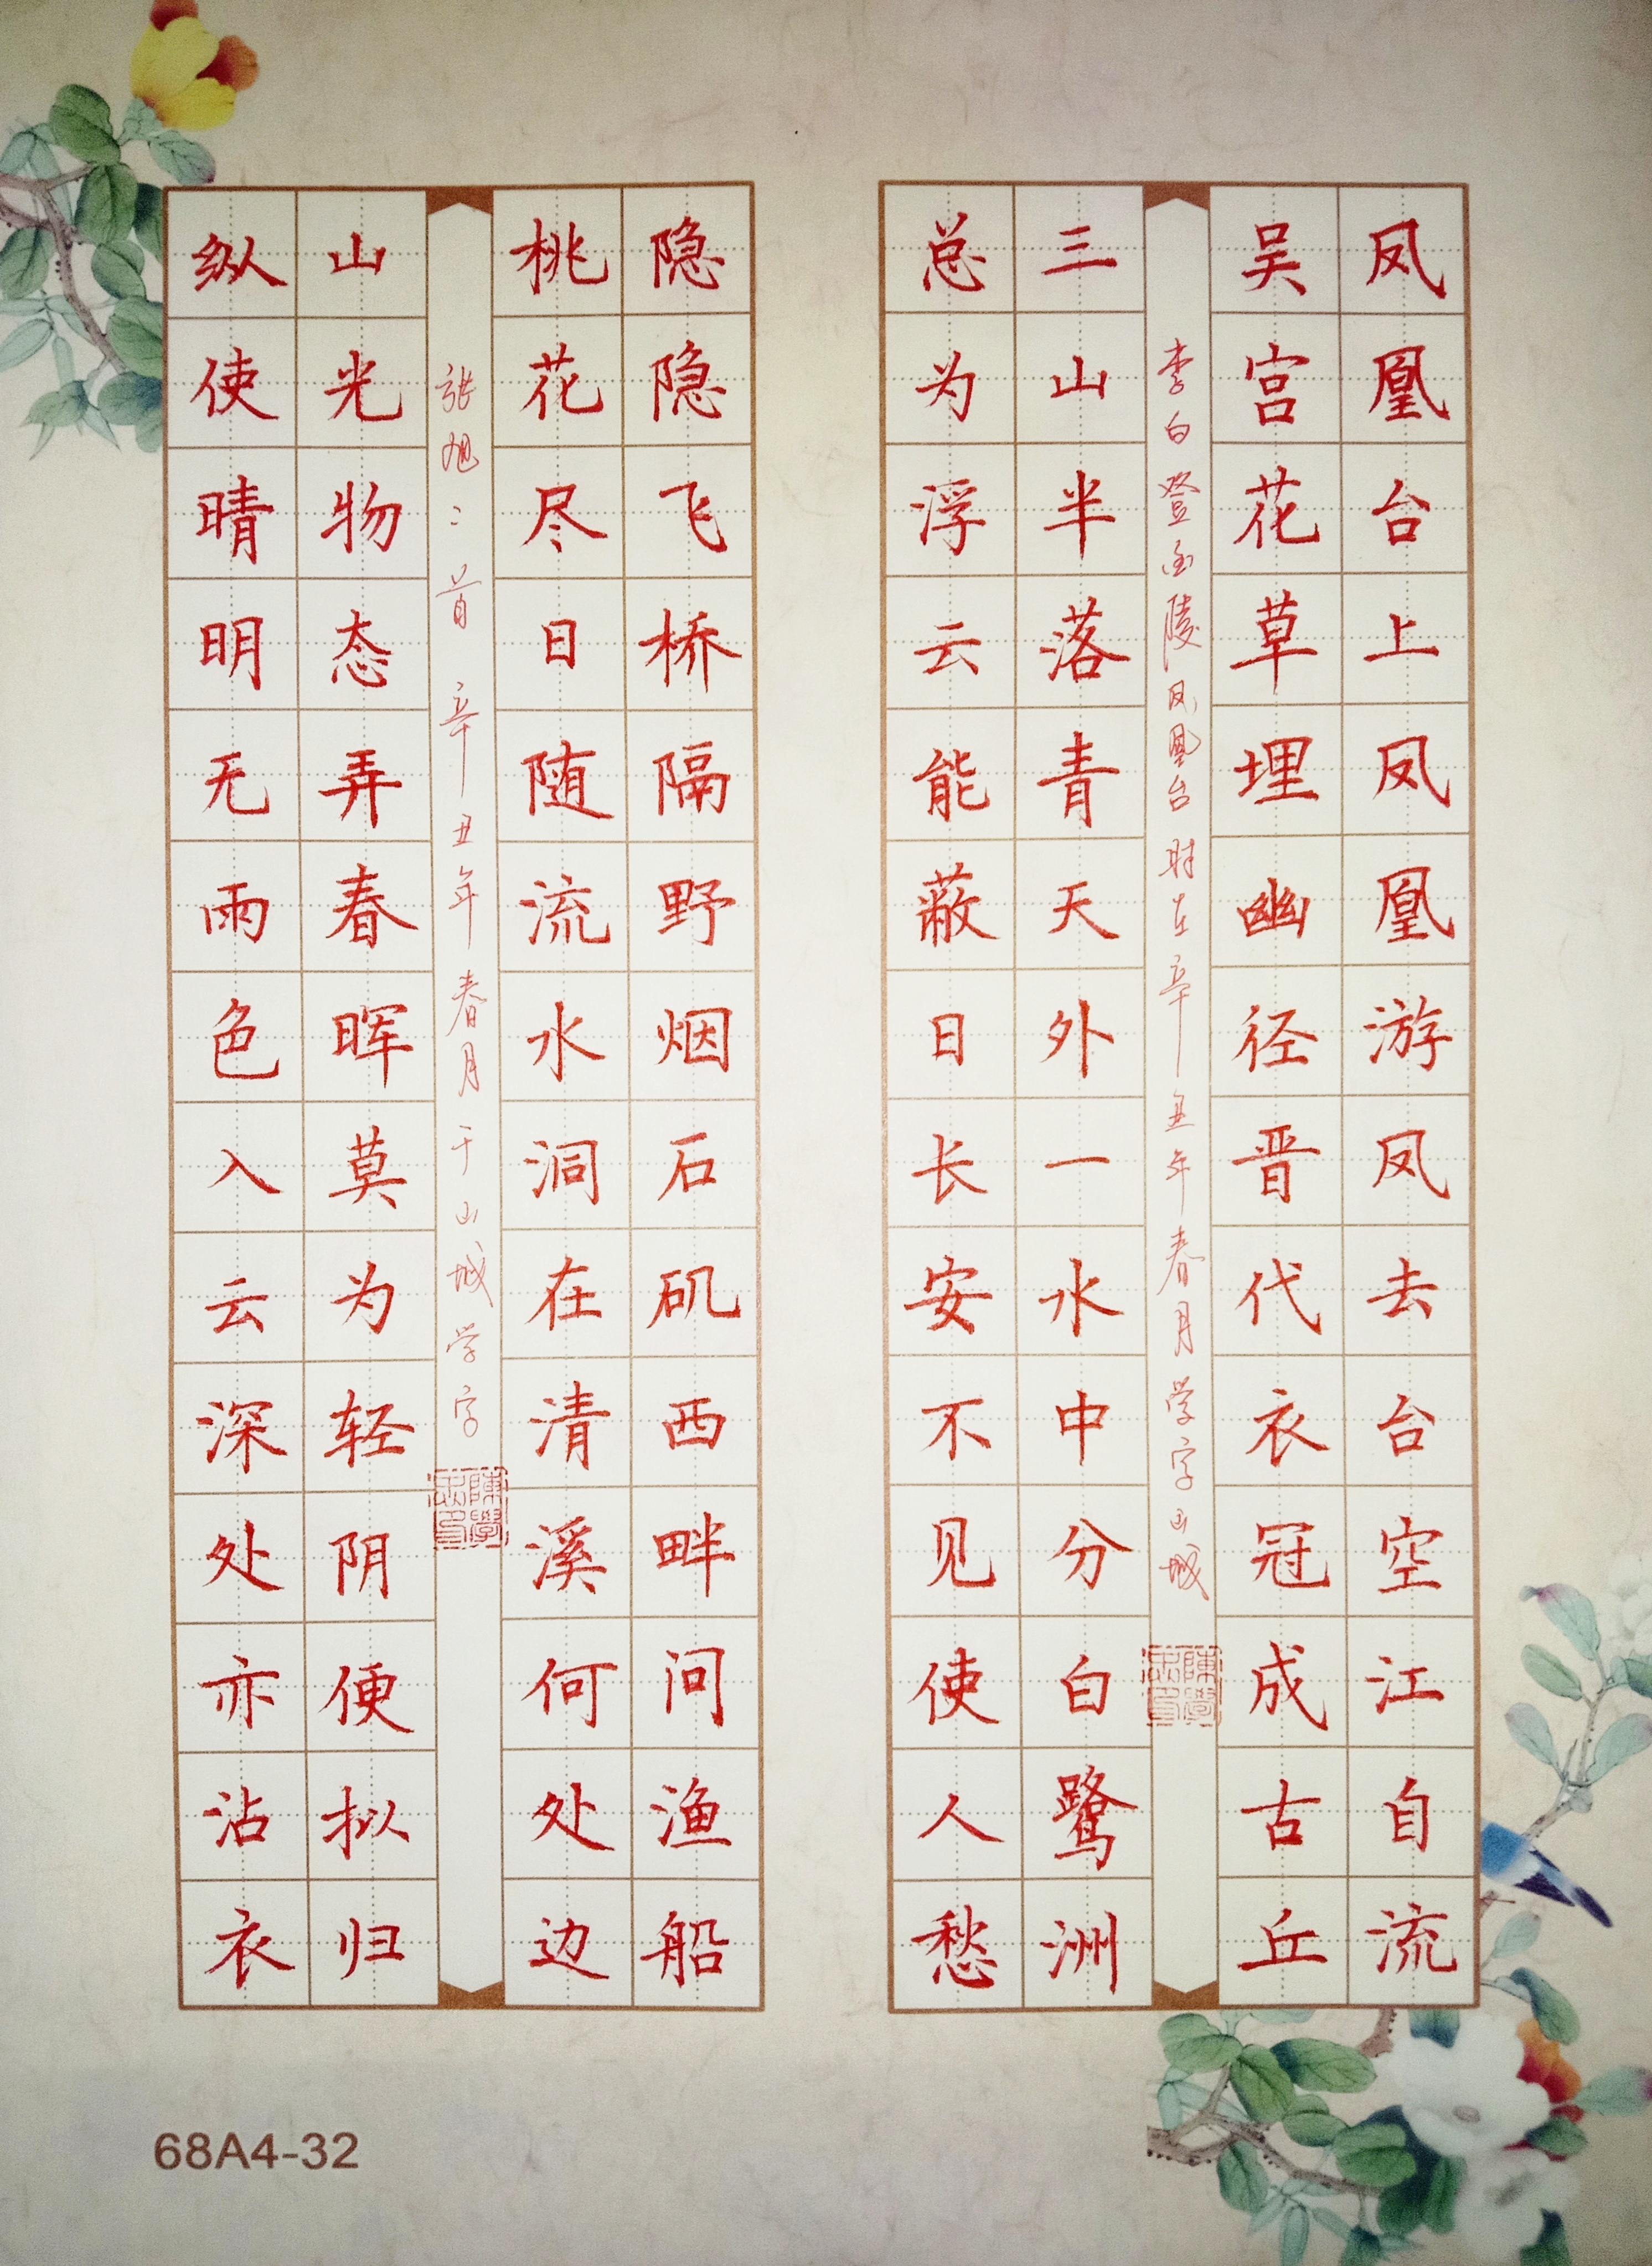 凤凰台上凤凰游凤去台空江自流
吴宫花草埋幽径晋代衣冠成古丘
李白登金陵凤凰台时在辛丑年春月学字山城
三山半落青天外一水中分白鹭洲
总为浮云能蔽日长安不见使人愁
隐隐飞桥隔野烟石矶西畔问渔船
桃花尽日随流水洞在清溪何处边
张旭二首辛丑年春月于山城学字
山光物态弄春晖莫为轻阴便拟归
纵使晴明无雨色入云深处亦沾衣
68A4-32